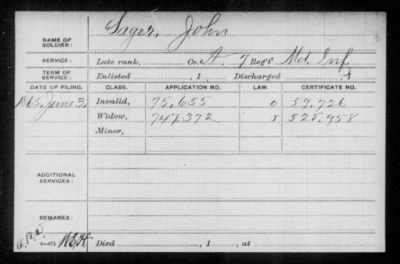 NAME OF SOLDIER: Sager, John
SERVICE: Late rank, Co. A, 7 Reg't Md. Inf.
TERM OF SERVICE: Enlisted , 1 Discharged , 1
DATE OF FILING. CLASS. APPLICATION NO. LAW. CERTIFICATE NO.
1865, June 3, Invalid, 75,655 59,726
Widow, 741,372 525,958
Minor,
ADDITIONAL SERVICES:
REMARKS:
Died , 1 , at